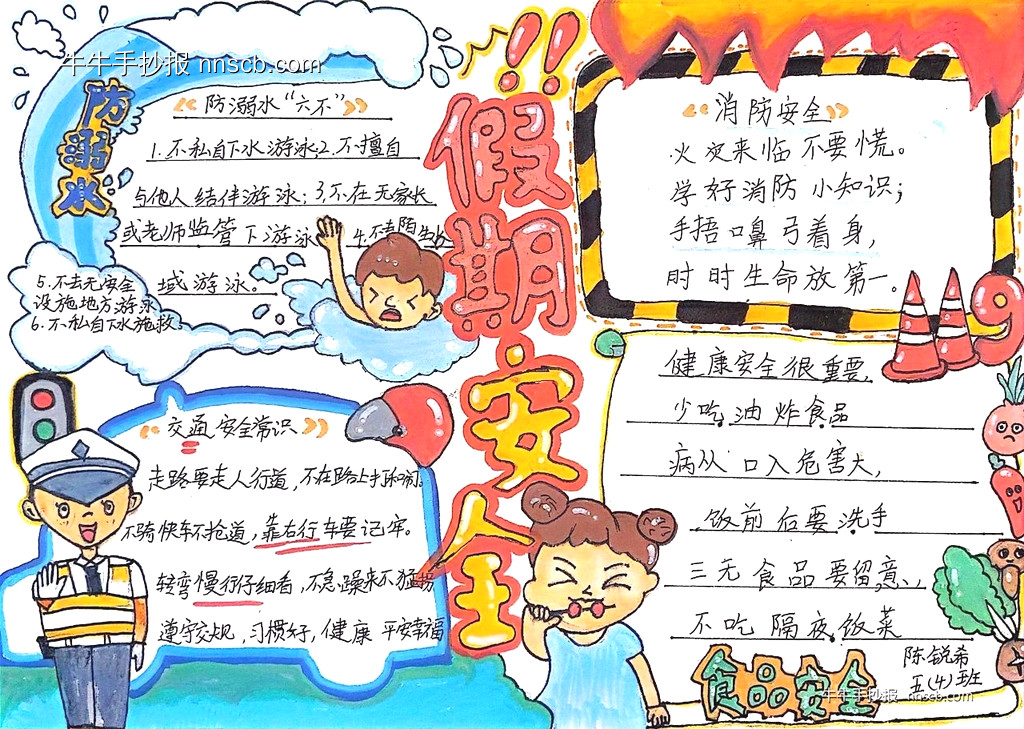 牛牛手抄报 nnscb.com
假期安全!!
防溺水
防溺水“六不”
1.不私自下水游泳;2.不擅自
与他人结伴游泳;3.不在无家长
或老师监管下游泳 4.不去陌生水
域游泳。
5.不去无安全
设施地方游泳
6.不私自下水施救。
消防安全
火灾来临不要慌。
学好消防小知识;
手捂口鼻弓着身,
时时生命放第一。
119
交通安全常识
走路要走人行道,不在路上打和闹。
不骑快车不抢道,靠右行车要记牢。
转弯慢行仔细看,不急躁来不猛拐
遵守交规,习惯好,健康平安幸福
健康安全很重要,
少吃油炸食品
病从口入危害大,
饭前后要洗手
三无食品要留意、
不吃隔夜饭菜
食品安全
陈锐希
五(4)班
牛牛手抄报 nnscb.com